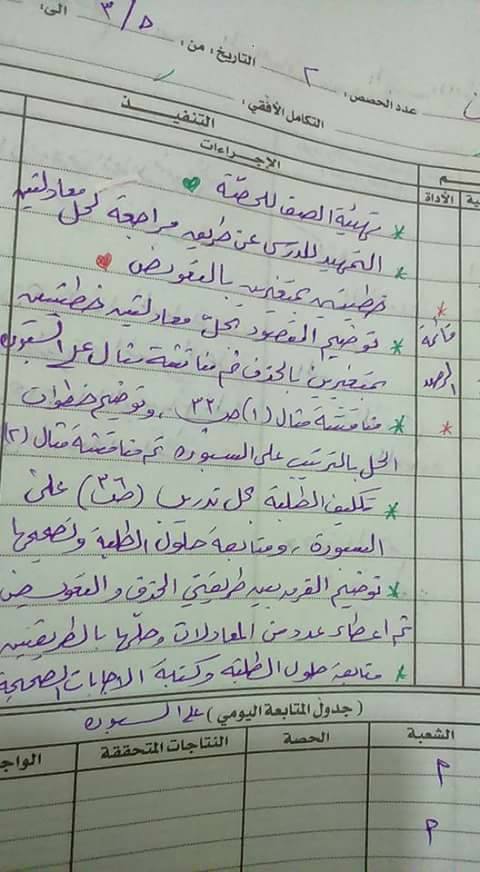 عدد الحصص: ٢ التاريخ: من: ٣/٥ الى:
التكامل الأفقي:
التنفيذ
الإجراءات
الأداة
* تهيئة الصف للحصة
* التمهيد للدرس عن طريق مراجعة لحل معادلتين
خطيتين بمتغيرين بالتعويض
* توضيح المقصود بحل معادلتين خطيتين
بمتغيرين بالحذف ثم مناقشة مثال على السبورة
* مناقشة مثال (١) ص ٣٢ وتوضيح خطوات
الحل بالترتيب على السبورة ثم مناقشة مثال (٢)
* تكليف الطلبة بحل تدريب على
السبورة، ومتابعة حلول الطلبة وتصحيحها
* توضيح الفرق بين طريقتي الحذف والتعويض
ثم اعطاء عدد من المعادلات وحلها بالطريقتين
* متابعة حلول الطلبة وكتابة الاجابات الصحيحة
على السبورة
*
قائمة
الرصد
*
(جدول المتابعة اليومي)
الشعبة الحصة النتاجات المتحققة
م
م